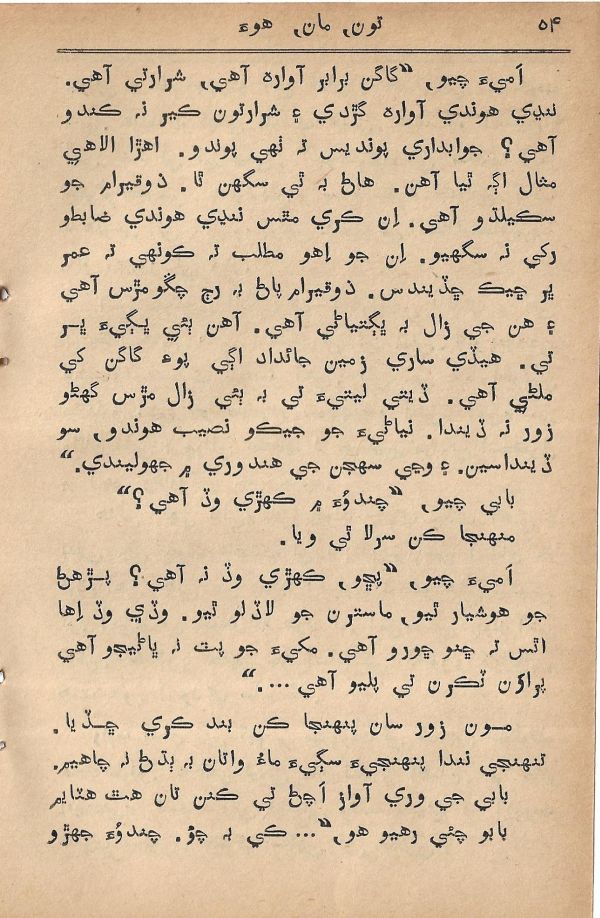 تون, مان, هوءَ ۵۴
اَميءَ چيو, “گاگن برابر آواره آهي, شرارتي آهي.
ننڍي هوندي آواره گرّدي ۽ شرارتون ڪير نہ ڪندو
آهي؟ جوابداري پونديس تہ ٺهي پوندو. اهڙا الاهي
مثال اڳہ ٿيا آهن. هاڻ بہ ٿي سگهن ٿا. ذوقيرام جو
سڪيلڌو آهي. اِن ڪري مٿس ننڍي هوندي ضابطو
رکي نہ سگهيو. اِن جو اِهو مطلب تہ ڪونهي تہ عمر
ڀر ڇيڪ ڇڏيندس. ذوقيرام پاڻ بہ رڄ چڱو مڙس آهي
۽ هن جي زال بہ ڀڳتياڻي آهي. آهن ٻئي ڀڳيءَ ڀر
تي. هيڏي ساري زمين جائداد اڳي پوءِ گاگن کي
ملڻي آهي. ڏيتي ليتيءَ تي بہ ٻئي زال مڙس گهڻو
زور نہ ڏيندا. نياڻيءَ جو جيڪو نصيب هوندو, سو
ڏينداسين. ۽ وڃي سهڄن جي هندوري ۾ جهوليندي.“
بابي چيو, “چندوُءَ ۾ ڪهڙي وڏ آهي؟“
منهنجا ڪن سرلا ٿي ويا.
اَميءَ چيو, “پڇو, ڪهڙي وڏ نہ آهي؟ پڙهڻ
جو هوشيار ٿيو, ماسترن جو لاڏلو ٿيو. وڏي وڏ اِها
اٿس تہ ڇنو ڇورو آهي. مکيءَ جو پٽ نہ ڀاڻيجو آهي
پراون ٽڪرن تي پليو آهي ....“
مون زور سان پنهنجا ڪن بند ڪري ڇڏيا.
تنهنجي نندا پنهنجيءَ سڳيءَ ماءُ واتان بہ ٻڌڻ نہ چاهيم.
بابي جي وري آواز اَچڻ تي ڪنن تان هٿ هٽايم
بابو چئي رهيو هو, “... ڪي بہ چؤ. چندوُءَ جهڙو